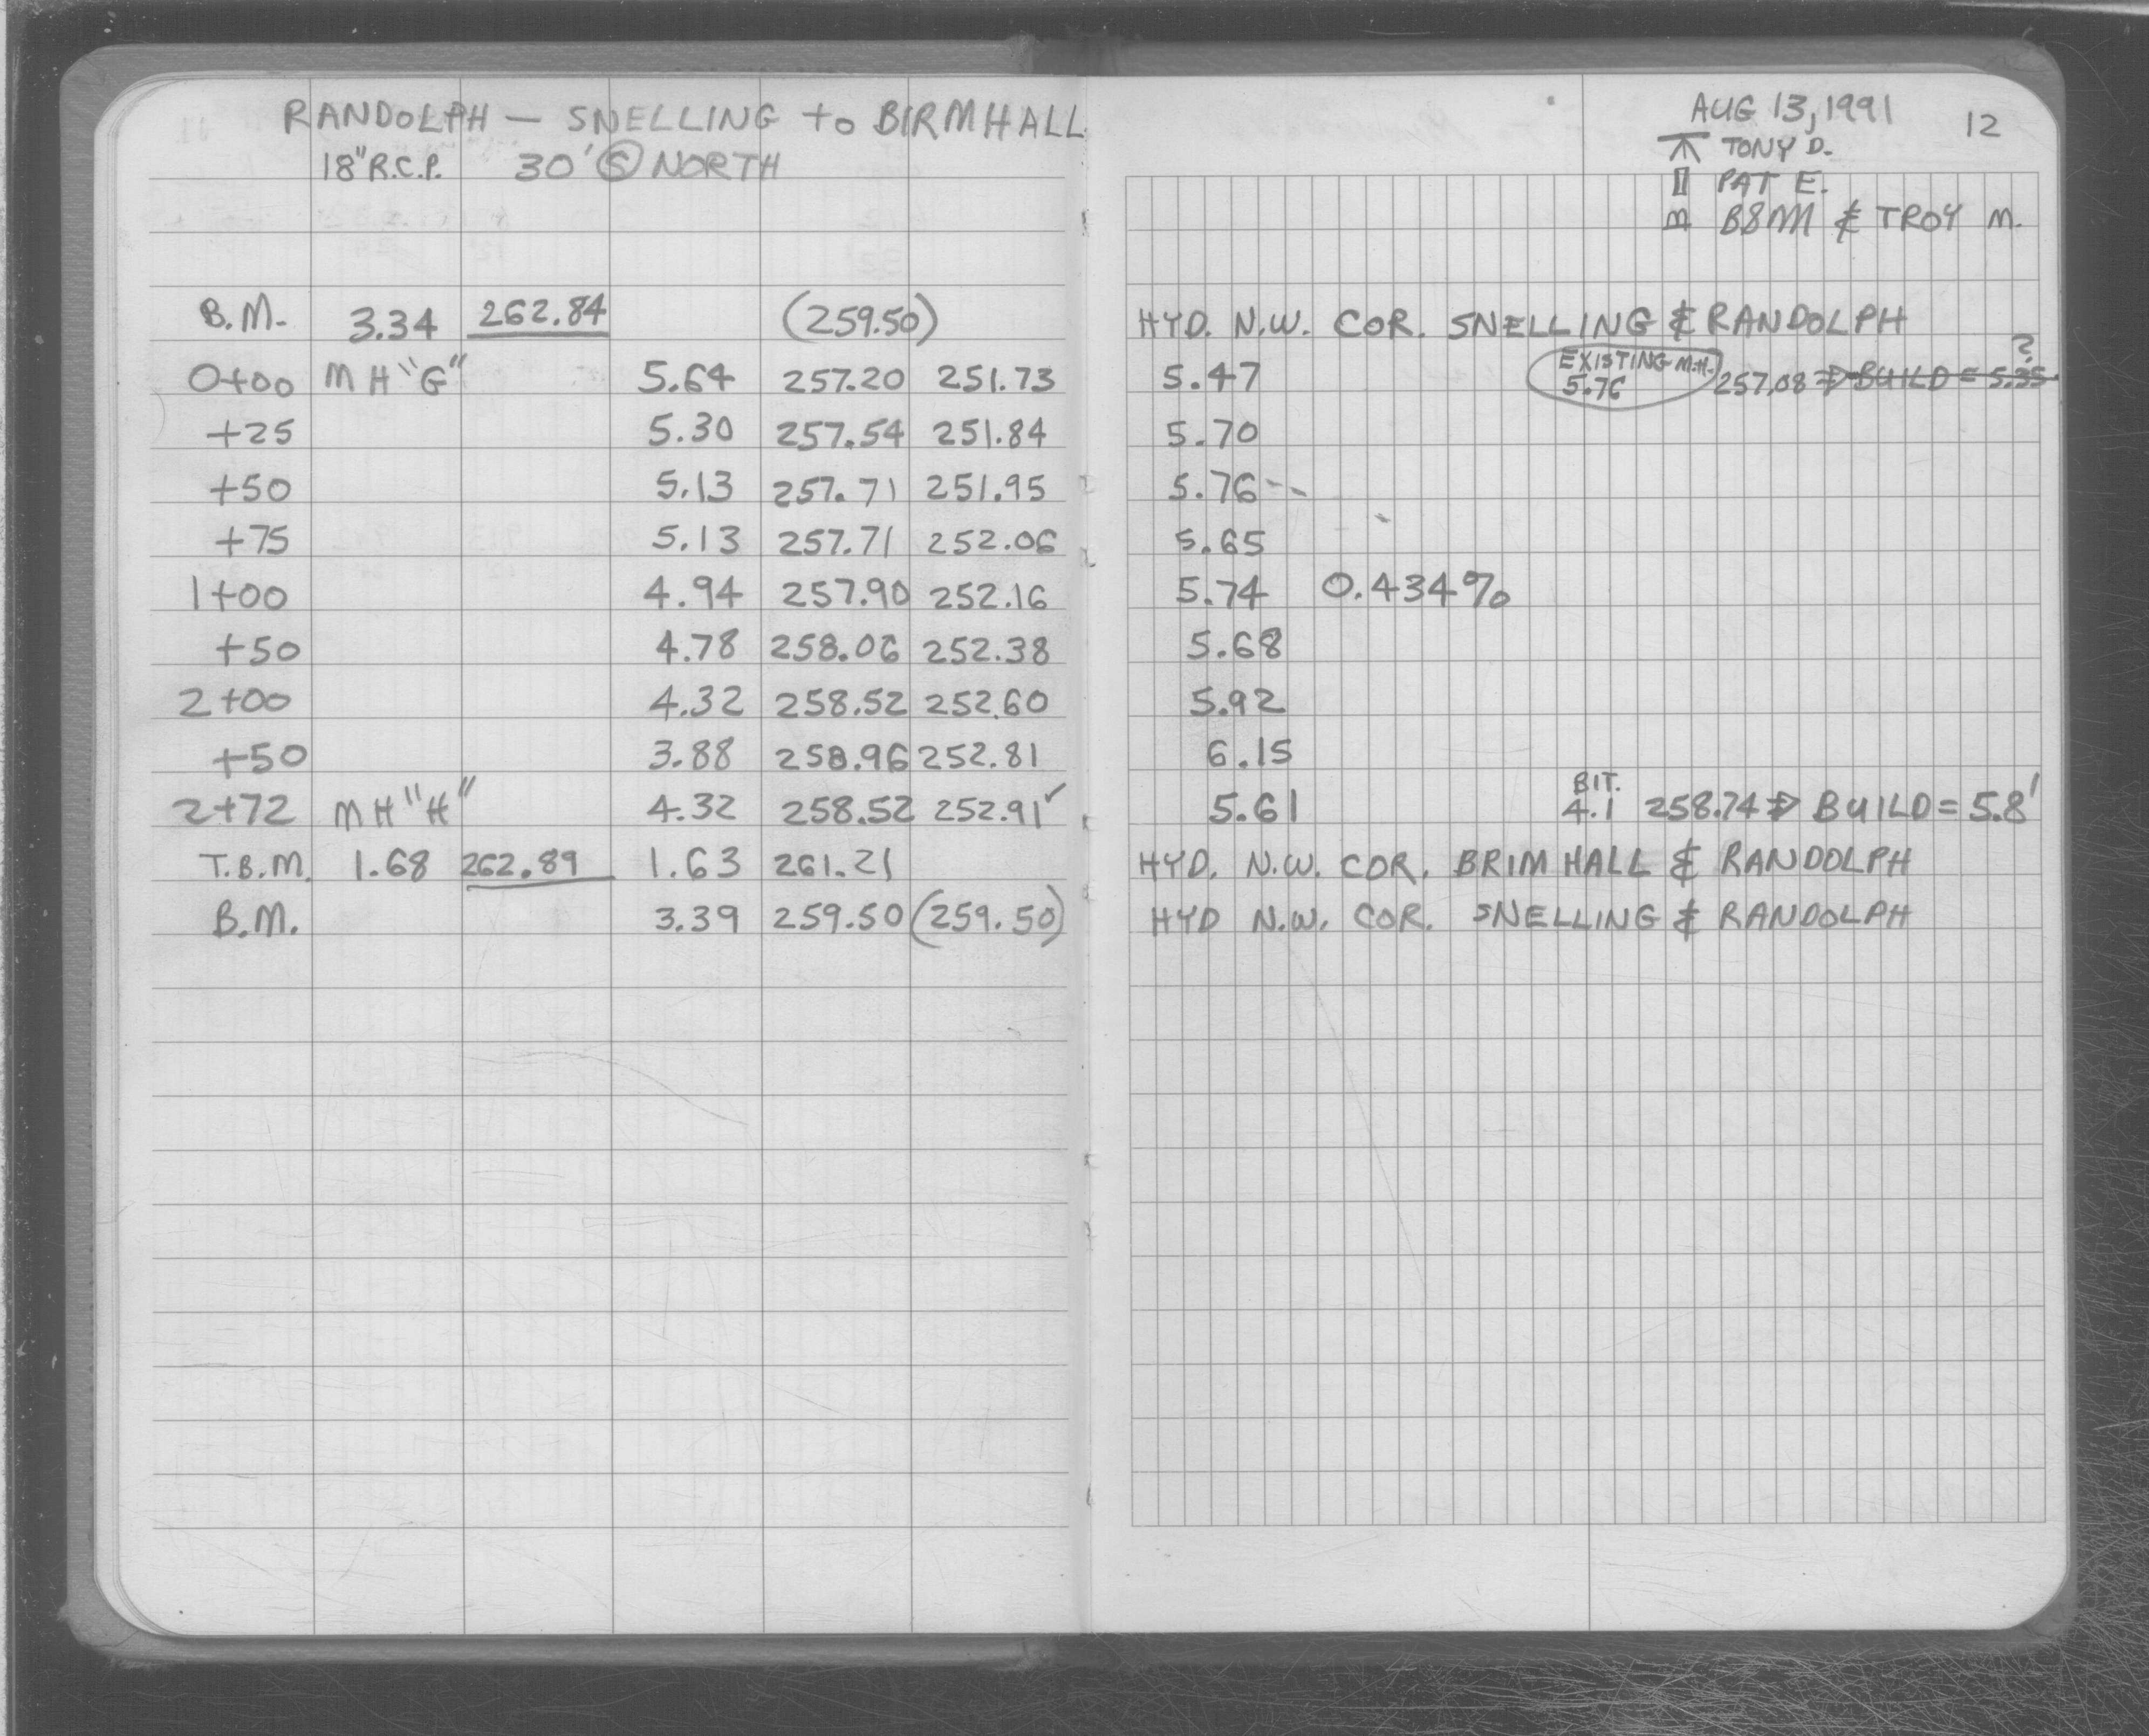 RANDOLPH — SNELLING to BIRMHALL
18" R.C.P. 30' Ⓢ NORTH
AUG 13, 1991 12
TONY D.
PAT E.
TROY M.
B.M. 3.34 262.84 (259.50) HYD. N.W. COR. SNELLING & RANDOLPH
0+00 MH "G" 5.64 257.20 251.73 5.47 EXISTING M.H. 5.76 257.08 ⇒ BUILD = 5.35 ?
+25 5.30 257.54 251.84 5.70
+50 5.13 257.71 251.95 5.76
+75 5.13 257.71 252.06 5.65
1+00 4.94 257.90 252.16 5.74 0.434%
+50 4.78 258.06 252.38 5.68
2+00 4.32 258.52 252.60 5.92
+50 3.88 258.96 252.81 6.15
2+72 MH "H" 4.32 258.52 252.91✓ 5.61 BIT. 4.1 258.74 ⇒ BUILD = 5.8'
T.B.M. 1.68 262.89 1.63 261.21 HYD. N.W. COR. BRIMHALL & RANDOLPH
B.M. 3.39 259.50 (259.50) HYD N.W. COR. SNELLING & RANDOLPH